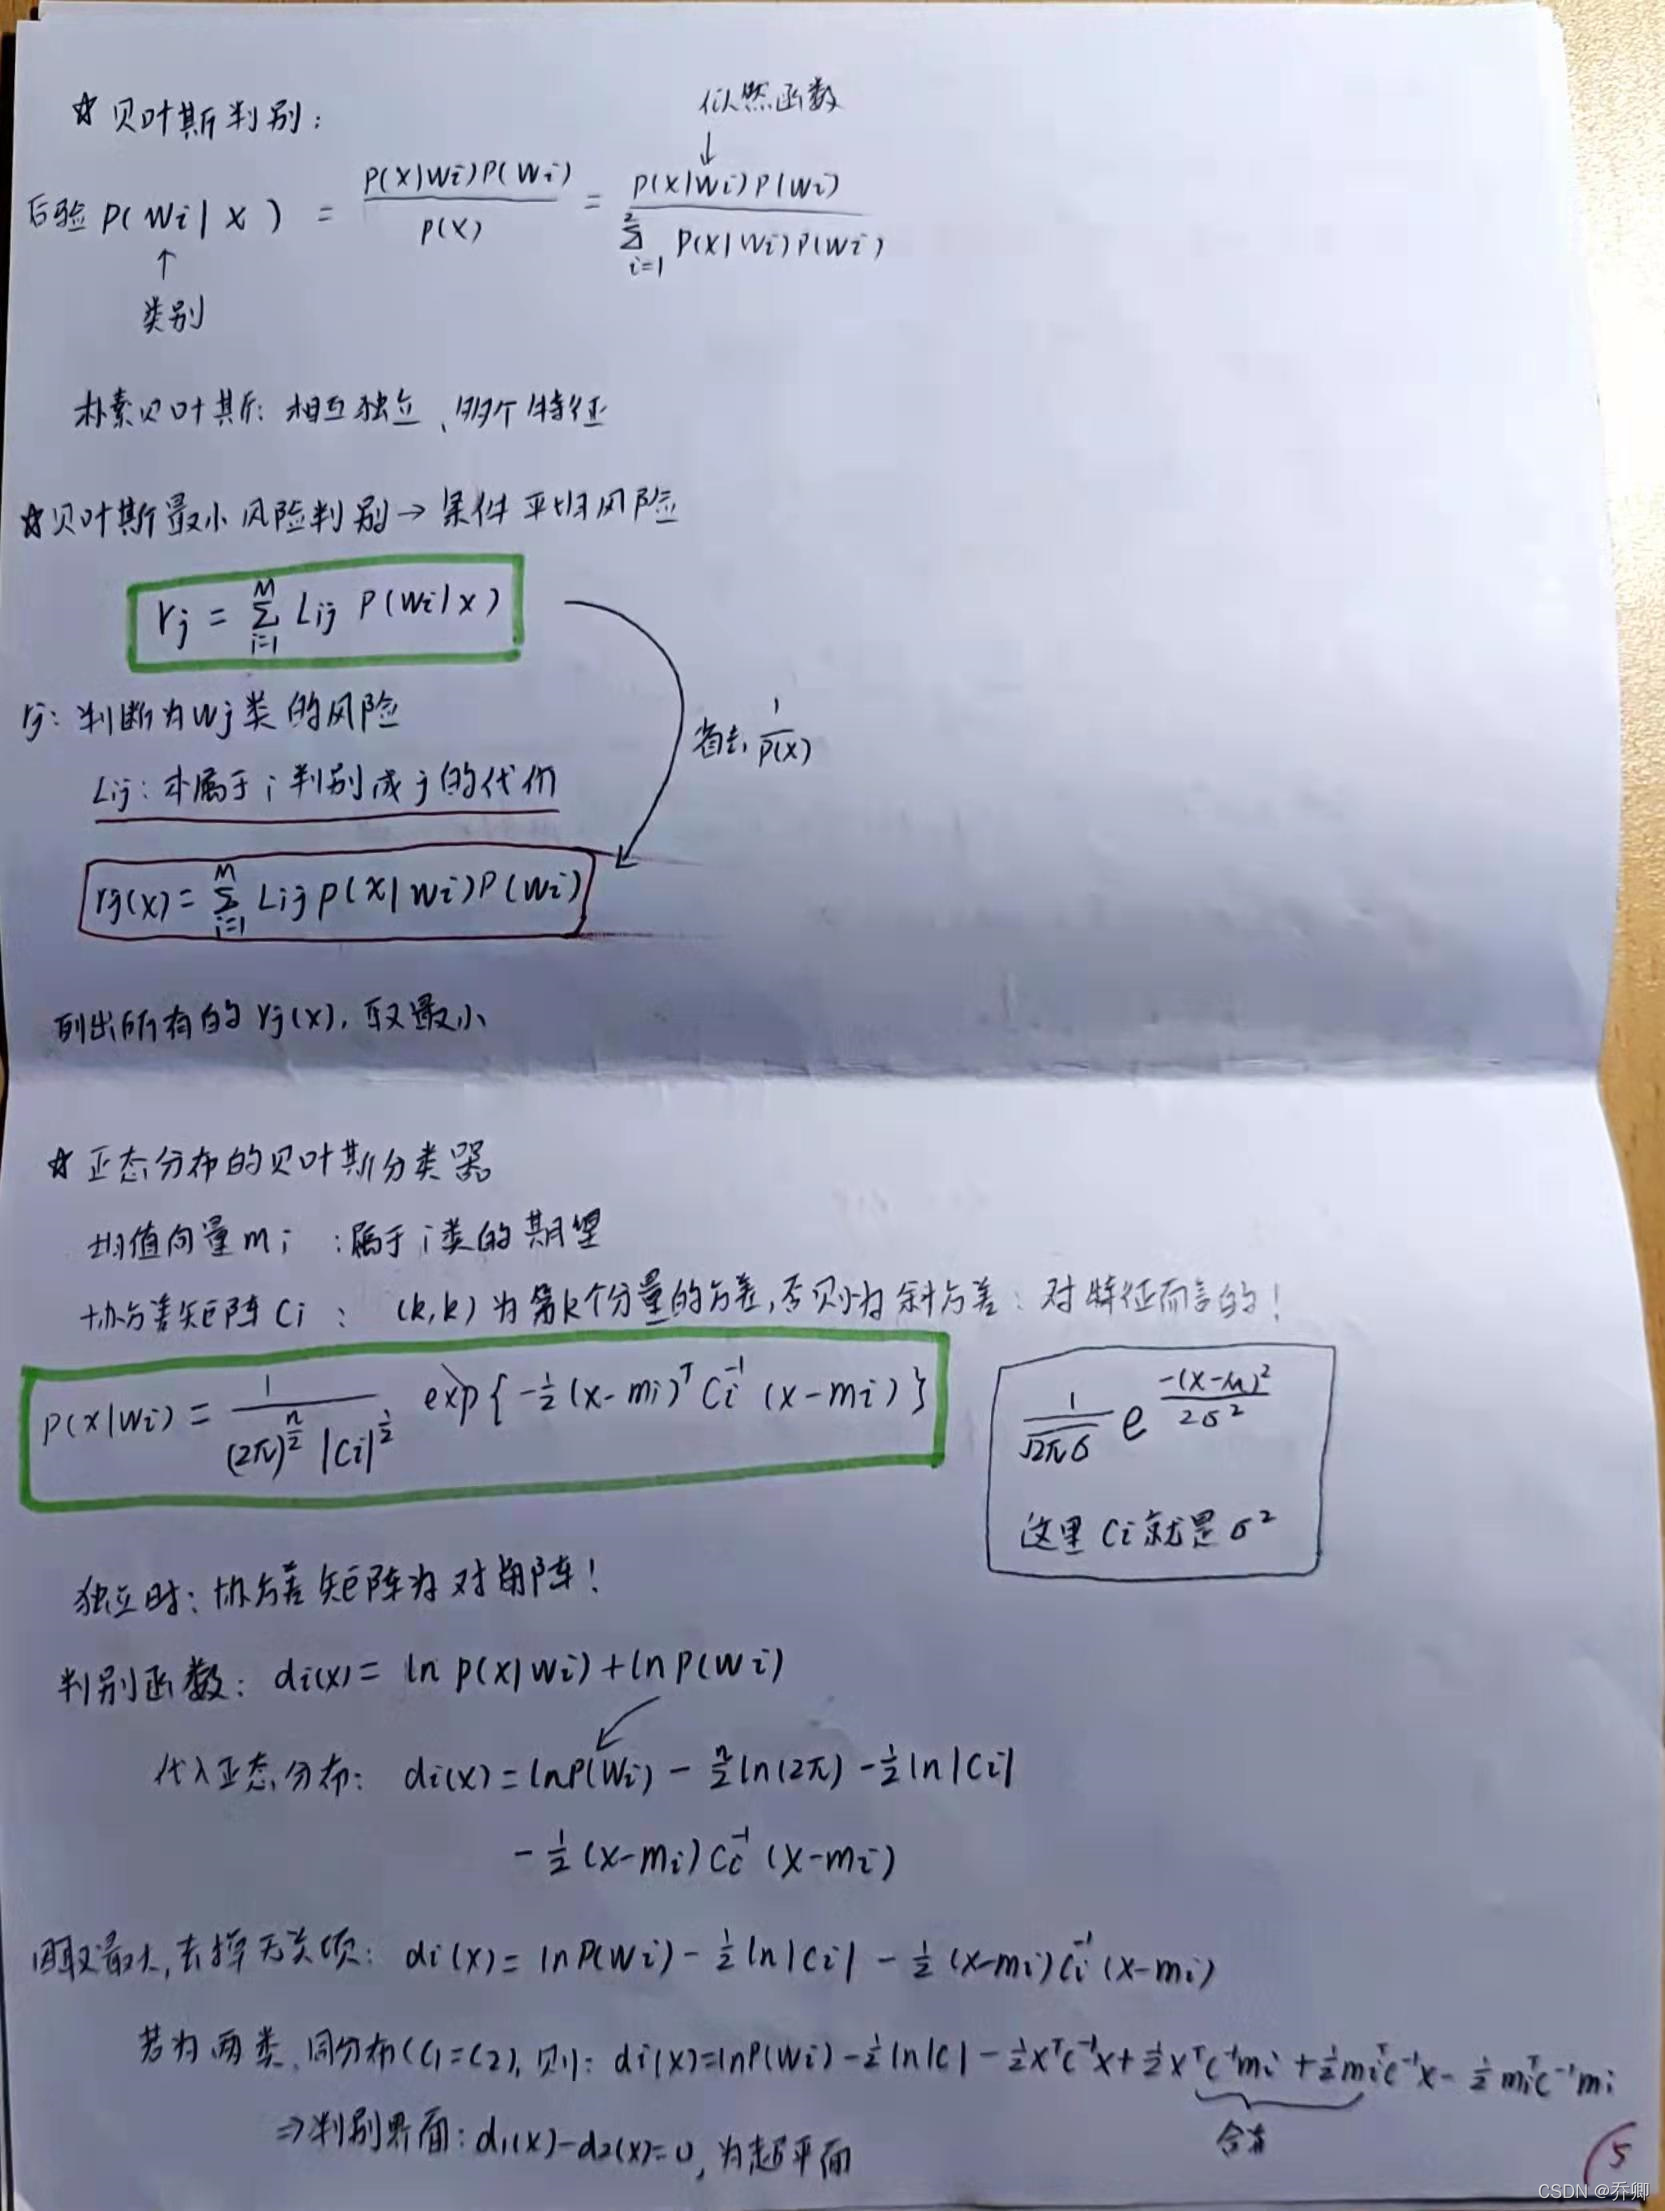 ☆ 贝叶斯判别:
似然函数
↓
后验 P(Wi|X) = P(X|Wi)P(Wi) / P(X) = P(X|Wi)P(Wi) / Σ_{i=1}^{2} P(X|Wi)P(Wi)
↑
类别
朴素贝叶斯: 相互独立、明个特征
☆贝叶斯最小风险判别→条件平均风险
rj = Σ_{i=1}^{M} Lij P(Wi|x)
rj: 判断为Wj类的风险
省去 1/P(X)
Lij: 本属于i判别成j的代价
rj(X) = Σ_{i=1}^{M} Lij P(X|Wi)P(Wi)
列出所有的rj(X), 取最小
☆ 正态分布的贝叶斯分类器
均值向量mi :属于i类的期望
协方差矩阵Ci : (k,k)为第k个分量的方差,否则为斜方差: 对特征而言的!
P(X|Wi) = 1 / ((2π)^{n/2} |Ci|^{1/2}) exp{-½(X-mi)^T Ci^{-1} (X-mi)}
1/(√2πσ) e^{-(X-μ)²/2σ²}
这里Ci就是σ²
独立时: 协方差矩阵为对角阵!
判别函数: di(X) = ln P(X|Wi) + ln P(Wi)
代入正态分布: di(X) = lnP(Wi) - n/2 ln(2π) - ½ ln|Ci|
- ½ (X-mi) Ci^{-1} (X-mi)
因取最大,去掉无关项: di(X) = lnP(Wi) - ½ ln|Ci| - ½ (X-mi) Ci^{-1} (X-mi)
若为两类,同分布(C1=C2),则: di(X)=lnP(Wi) - ½ ln|C| - ½X^T C^{-1}X + ½X^T C^{-1}mi + ½mi^T C^{-1}X - ½mi^T C^{-1}mi
⇒判别界面: d1(X)-d2(X)=0, 为超平面
5
CSDN @乔卿